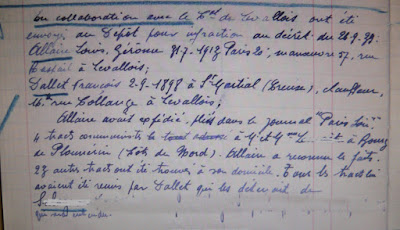 en collaboration avec le C.re de Levallois ont été
envoyés au Dépôt pour infraction au décret du 26.9.39:
Allaire Louis, Gérôme 31.7.1912 Paris 20è, manœuvre 57, rue
à Levallois;
Dallet François 2-9-1898 à St Martial (Creuse), chauffeur,
16 bis rue Collange à Levallois;
Allaire avait expédié pliés dans le journal "Paris Soir"
4 tracts communistes à M et Mme à Bourg
de Ploumilin (Côtes du Nord). Allaire a reconnu les faits.
23 autres tracts ont été trouvés à son domicile. Tous les tracts lui
avaient été remis par Dallet qui les détenait de